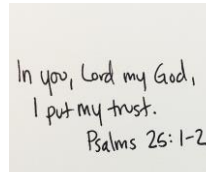 In you, Lord my God,
I put my trust.
Psalms 25:1-2